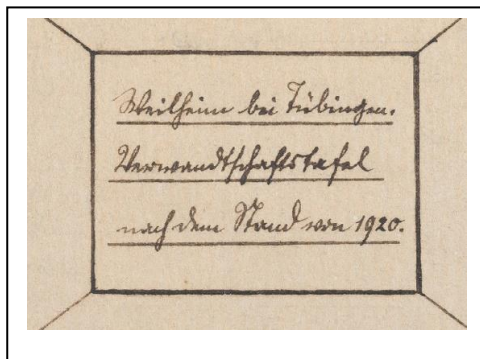 Weilheim bei Tübingen.
Verwandtschaftstafel
nach dem Stand von 1920.